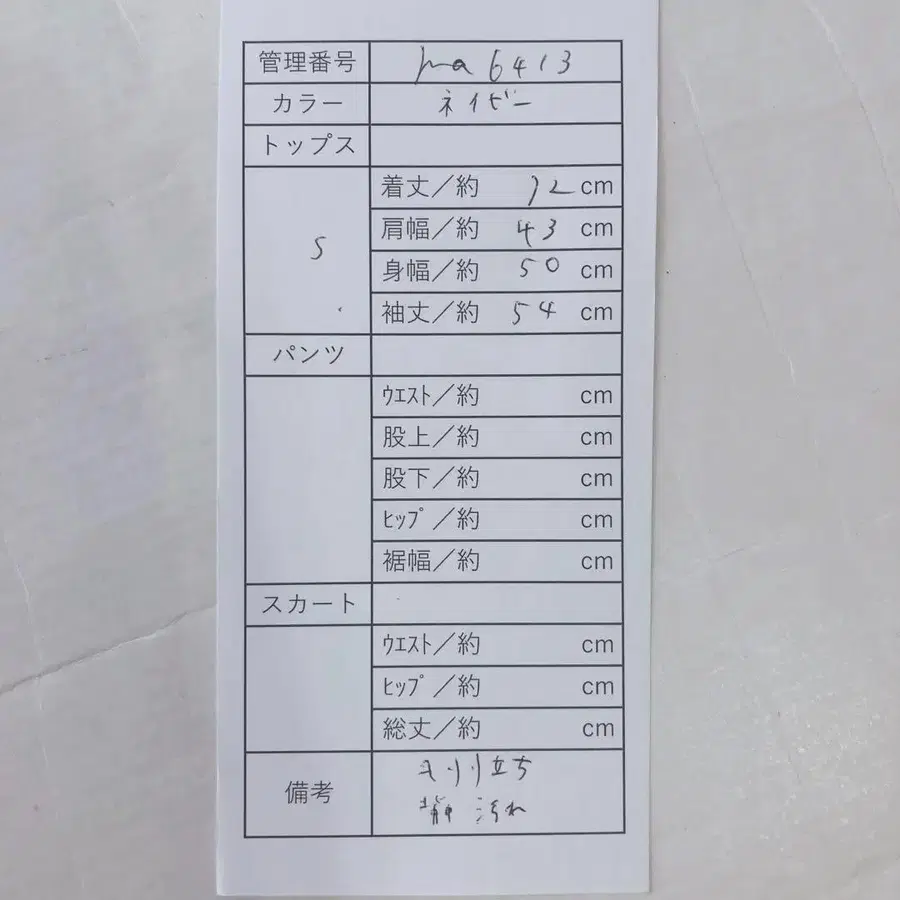 管理番号 ma6413
カラー ネイビー
トップス
S
着丈／約 72 cm
肩幅／約 43 cm
身幅／約 50 cm
袖丈／約 54 cm
パンツ
ｳｴｽﾄ／約 cm
股上／約 cm
股下／約 cm
ﾋｯﾌﾟ／約 cm
裾幅／約 cm
スカート
ｳｴｽﾄ／約 cm
ﾋｯﾌﾟ／約 cm
総丈／約 cm
備考
毛羽立ち
背中 汚れ